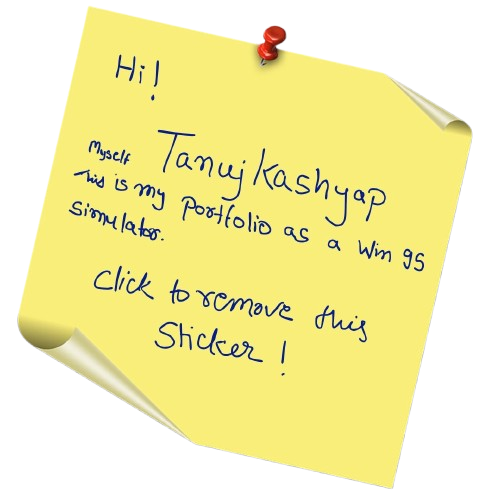 Hi!
Myself Tanuj Kashyap
This is my Portfolio as a Win 95
Simulator.
Click to remove this
Sticker !